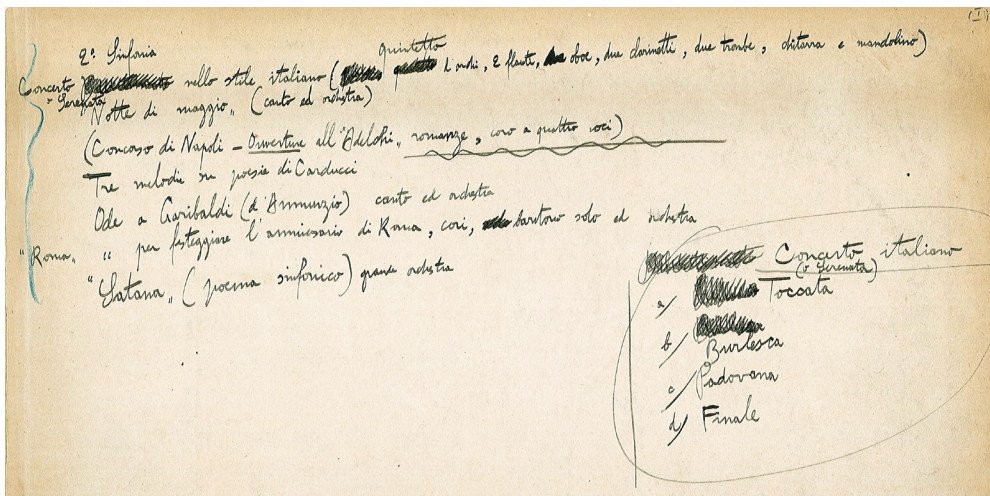 (I)
2ª Sinfonia
quintetto
Concerto nello stile italiano ( d'archi, 2 flauti, oboe, due clarinetti, due trombe, chitarra e mandolino)
o Serenata
"Notte di maggio„ (canto ed orchestra)
(Concorso di Napoli - Ouverture all'"Adelchi„ romanze, coro a quattro voci)
Tre melodie su poesie di Carducci
Ode a Garibaldi (d'Annunzio) canto ed orchestra
"Roma„ " per festeggiare l'anniversario di Roma, cori, baritono solo ed orchestra
"Satana„ (poema sinfonico) grande orchestra
Concerto italiano
(o Serenata)
a/ Toccata
b/
Burlesca
c/ Padovana
d/ Finale